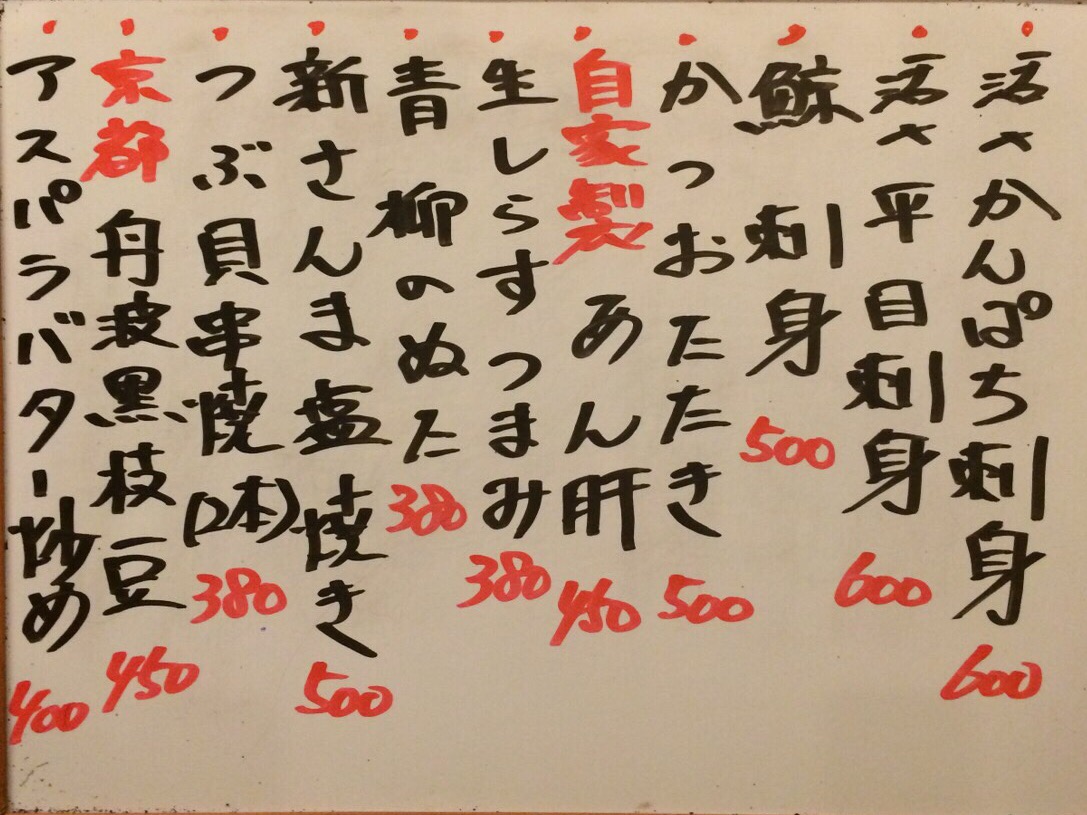 活〆かんぱち刺身 600
活〆平目刺身 600
鯨刺身 500
かつおたたき 500
自家製 あん肝 450
生しらすつまみ 380
青柳のぬた 380
新さんま塩焼き 500
つぶ貝串焼(2本) 380
京都 丹波黒枝豆 450
アスパラバター炒め 400